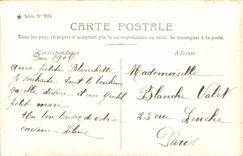 ★ Série N° 995
CARTE POSTALE
Tous les pays étrangers n'acceptent pas la correspondance au recto. Se renseigner à la poste.
Correspondance
Adresse
1904
Ma petite Blanchette
Je souhaite tout le bonheur
qu'elle désire et un gentil
petit mari.
Un bon baiser de votre
cousine
Mademoiselle
Blanche Valet
23 rue
Paris